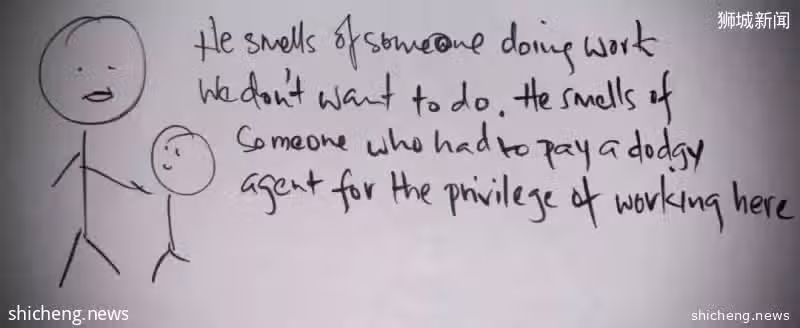 狮城新闻
He smells of someone doing work
We don't want to do. He smells of
someone who had to pay a dodgy
agent for the privilege of working here
shicheng.news
shicheng.news